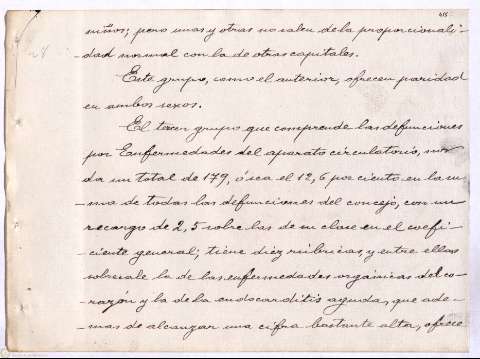 niños; pero unas y otras no salen de la proporcionali-
-dad normal con la de otras capitales.
Este grupo, como el anterior, ofrecen paridad
en ambos sexos.
El tercer grupo que comprende las defunciones
por Enfermedades del aparato circulatorio, nos
da un total de 179, ó sea el 12,6 por ciento en la su-
-ma de todas las defunciones del concejo, con un
recargo de 2,5 sobre las de su clase en el coefi-
-ciente general; tiene diez rúbricas, y entre ellas
sobresale la de las enfermedades orgánicas del co-
-razón y la de la endocarditis aguda, que ade-
-mas de alcanzar una cifra bastante alta, ofrece